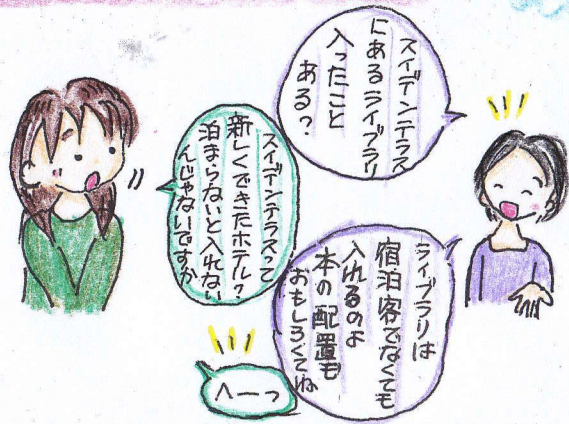 スイデンテラス
にあるライブラリ
入ったこと
ある?
スイデンテラスって
新しくできたホテル?
泊まらないと入れない
んじゃないですか
ライブラリは
宿泊客でなくても
入れるのよ
本の配置も
おもしろくてね
へーっ